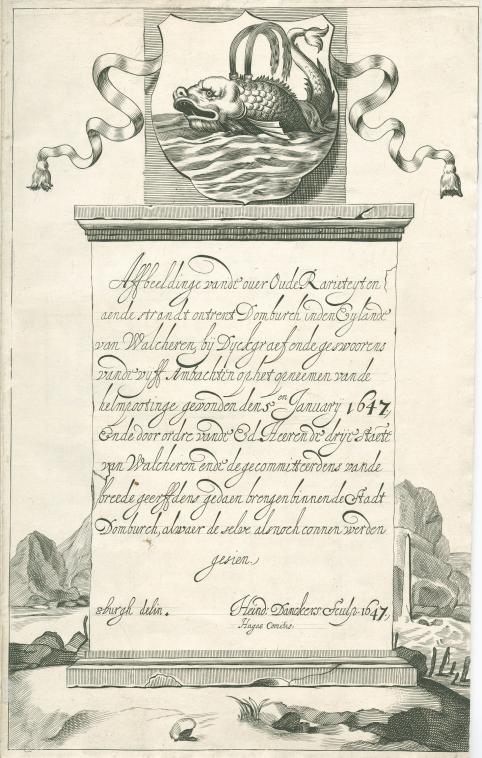 Affbeeldinge vande over Oude Rarieteyten
aende strandt ontrent Domburch inden Eylande
van Walcheren, bij Dyckgraef ende geswoorens
vande vyff Ambachten op het geneemen vande
helmpootinge gevonden den 5en January 1647,
Ende door ordre vande Ed. Heeren de drije Staete
van Walcheren ende de gecommitteerdens vande
breede geerffdens gedaen brengen binnen de Stadt
Domburch, alwaer de selve alsnoch connen werden
gesien,
burgh delin.
Heind: Danckers Sculp. 1647,
Hagae Comitis.